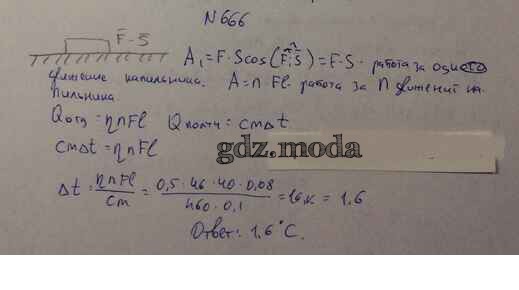 N 666
F̄ - S̄
A₁ = F · S cos(F̄;S̄) = F·S - работа за одно
движение напильника. A = n · Fl - работа за n движений на-
пильника.
Qотд = ηnFl Qполуч = cmΔt
cmΔt = ηnFl
gdz.moda
Δt = ηnFl / cm = 0,5 · 46 · 40 · 0,08 / 460 · 0,1 = 1,6 к = 1,6
Ответ: 1,6°C.